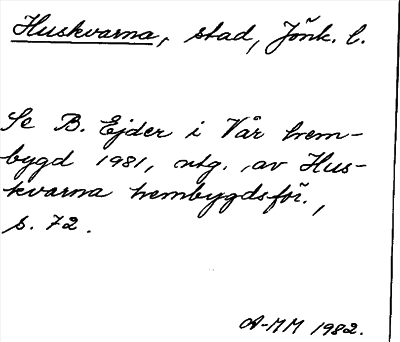 Huskvarna, stad, Jönk. l.
Se B. Ejder i Vår hem-
bygd 1981, utg. av Hus-
kvarna hembygdsför.,
s. 72.
A-MM 1982.